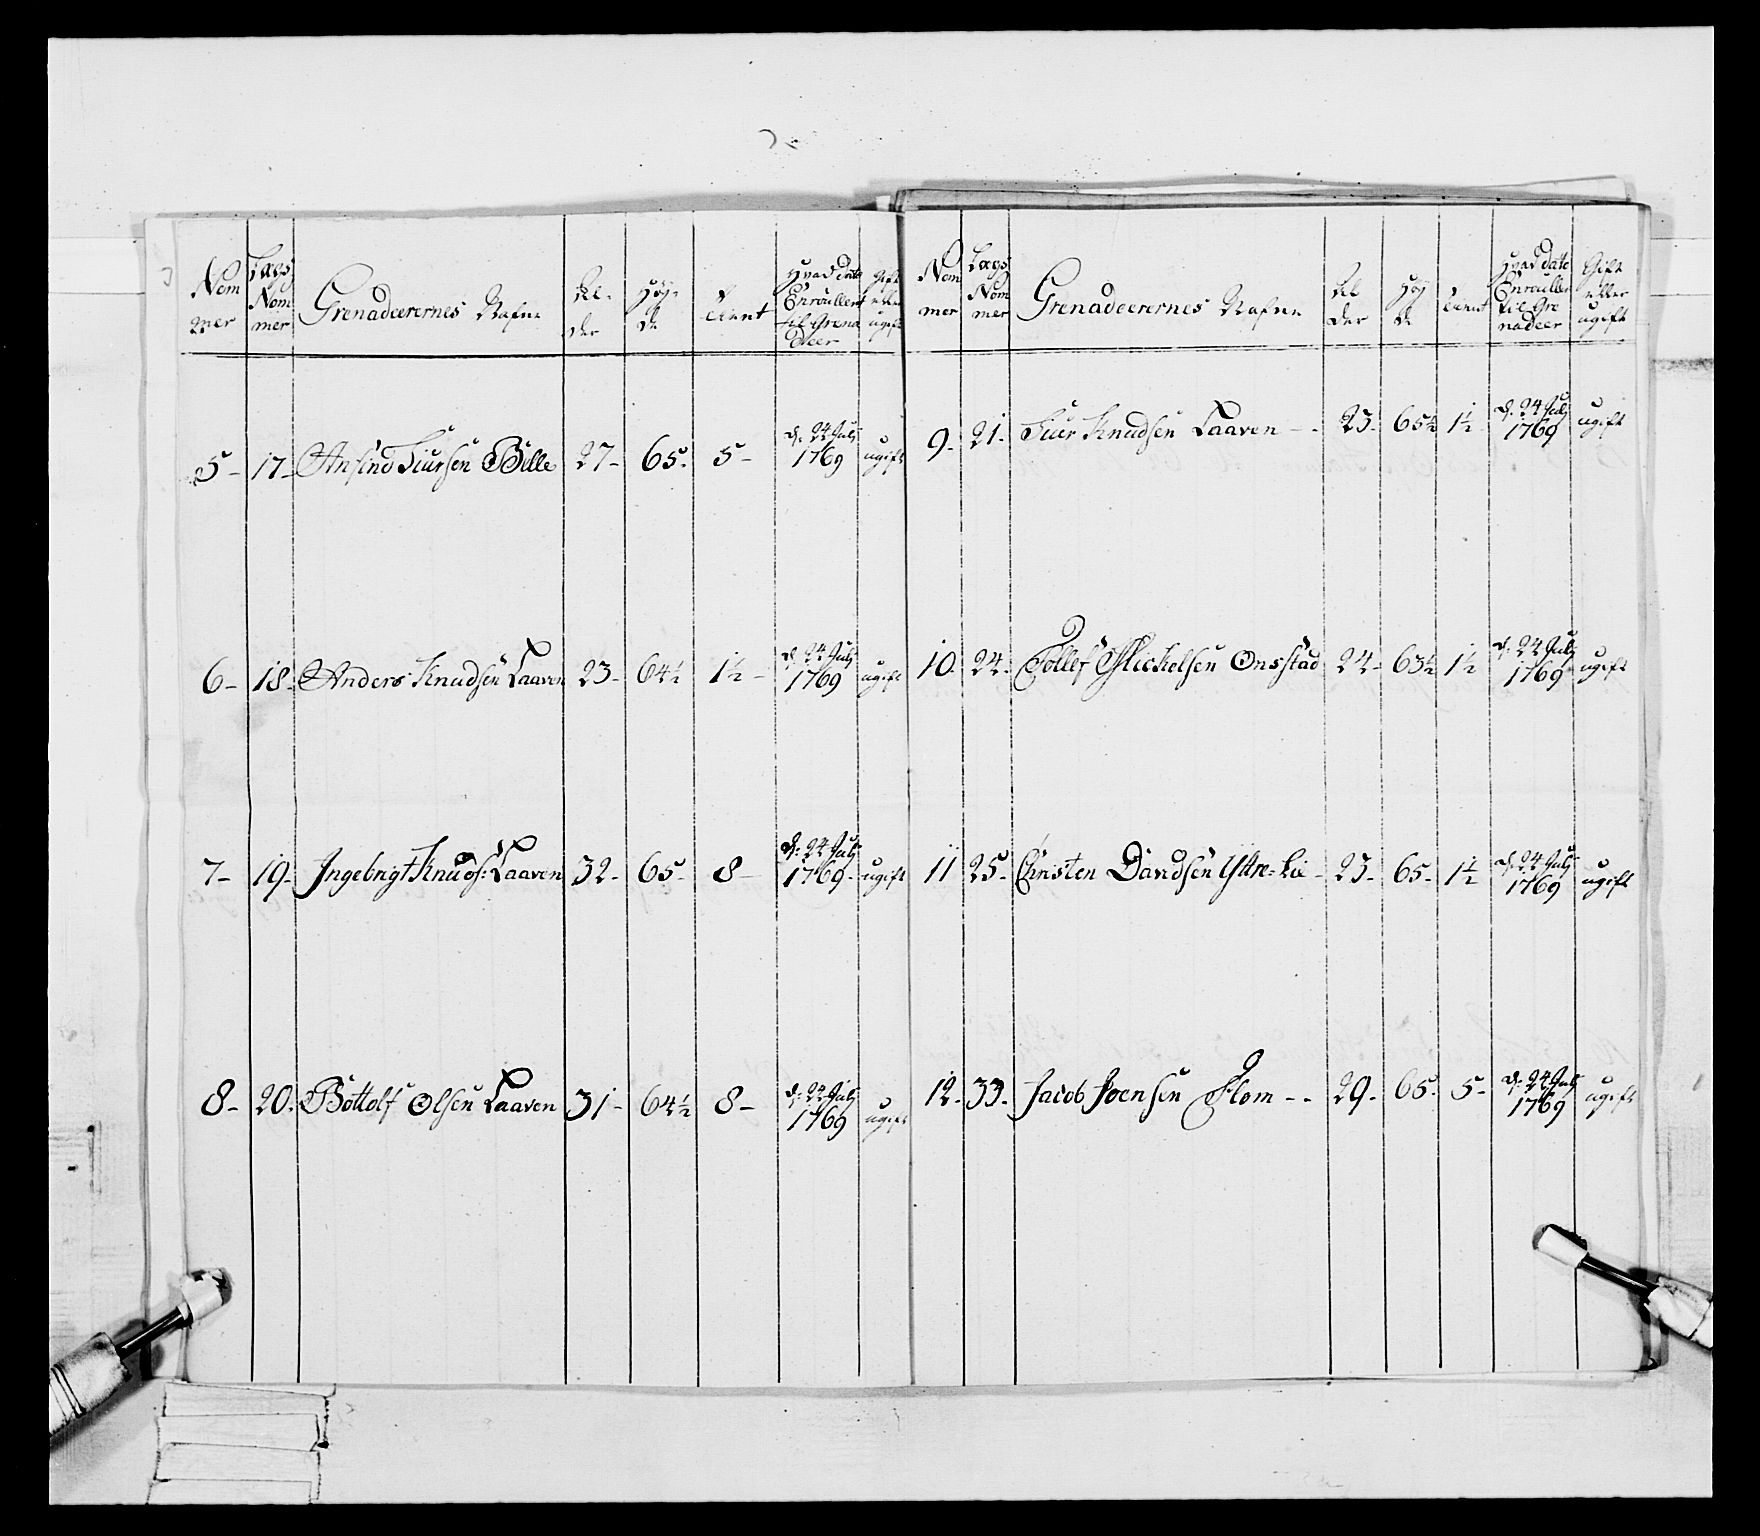 Nom
mer
Lægs
Nom
mer
Grenadeerernes Nafne
Al-
der
Høy-
de
tient
Hvad dato
Enroullert
til Grena
deer
Gift
eller
ugift
5- 17- Ansind Siursen Bølle 27- 65- 5- d: 24 July 1769 ugift
6- 18- Anders Knudsen Laaven 23- 64½ 1½- d: 24 July 1769 ugift
7- 19- Ingebrigt Knuds: Laaven 32- 65- 8- d: 24 July 1769- ugift
8- 20- Bottolf Olsen Laaven 31- 64½ 8- d: 24 July 1769 ugift
Nom
mer
Lægs
Nom
mer
Grenadeerernes Nafne
Al
der
Høy
de
tient
Hvad dato
Enroullert
til Gre
nadeer
Gift
eller
ugift
9- 21- Siur Knudsen Laaven - - 23- 65½ 1½ d: 24 July 1769 ugift
10- 24- Tollef Mickelsen Onsstad 24- 63½ 1½ d: 24 July 1769 ugift
11 25- Christen Davidsen Yttre=Lie - 23- 65- 1½ d: 24 July 1769 ugift
12- 33- Jacob Joensen Flom - - 29- 65- 5- d: 24 July 1769 ugift